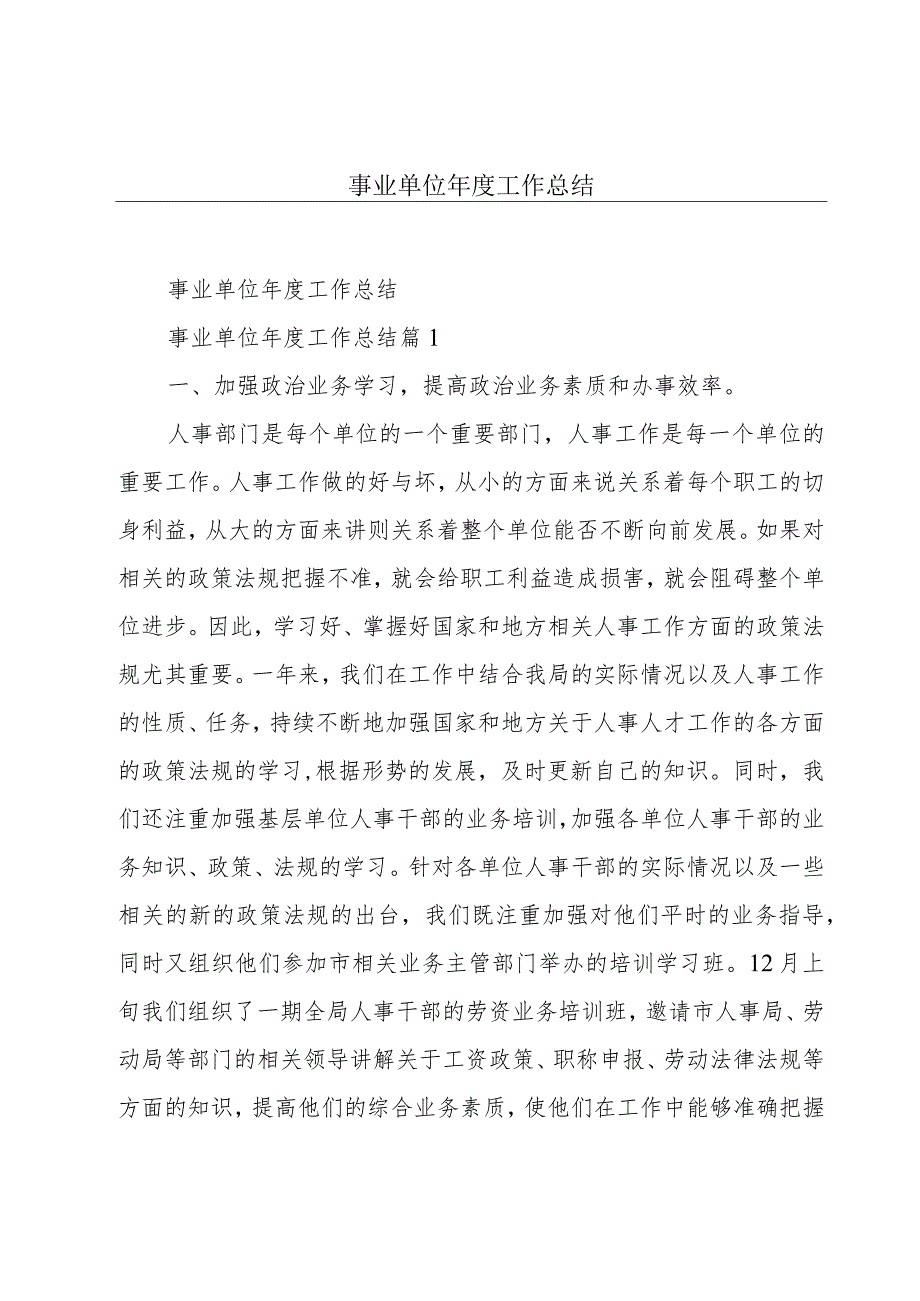 事业单位年度工作总结
事业单位年度工作总结
事业单位年度工作总结篇1
一、加强政治业务学习，提高政治业务素质和办事效率。
人事部门是每个单位的一个重要部门，人事工作是每一个单位的
重要工作。人事工作做的好与坏，从小的方面来说关系着每个职工的切
身利益，从大的方面来讲则关系着整个单位能否不断向前发展。如果对
相关的政策法规把握不准，就会给职工利益造成损害，就会阻碍整个单
位进步。因此，学习好、掌握好国家和地方相关人事工作方面的政策法
规尤其重要。一年来，我们在工作中结合我局的实际情况以及人事工作
的性质、任务，持续不断地加强国家和地方关于人事人才工作的各方面
的政策法规的学习,根据形势的发展，及时更新自己的知识。同时，我
们还注重加强基层单位人事干部的业务培训,加强各单位人事干部的业
务知识、政策、法规的学习。针对各单位人事干部的实际情况以及一些
相关的新的政策法规的出台，我们既注重加强对他们平时的业务指导，
同时又组织他们参加市相关业务主管部门举办的培训学习班。12月上
旬我们组织了一期全局人事干部的劳资业务培训班，邀请市人事局、劳
动局等部门的相关领导讲解关于工资政策、职称申报、劳动法律法规等
方面的知识，提高他们的综合业务素质，使他们在工作中能够准确把握